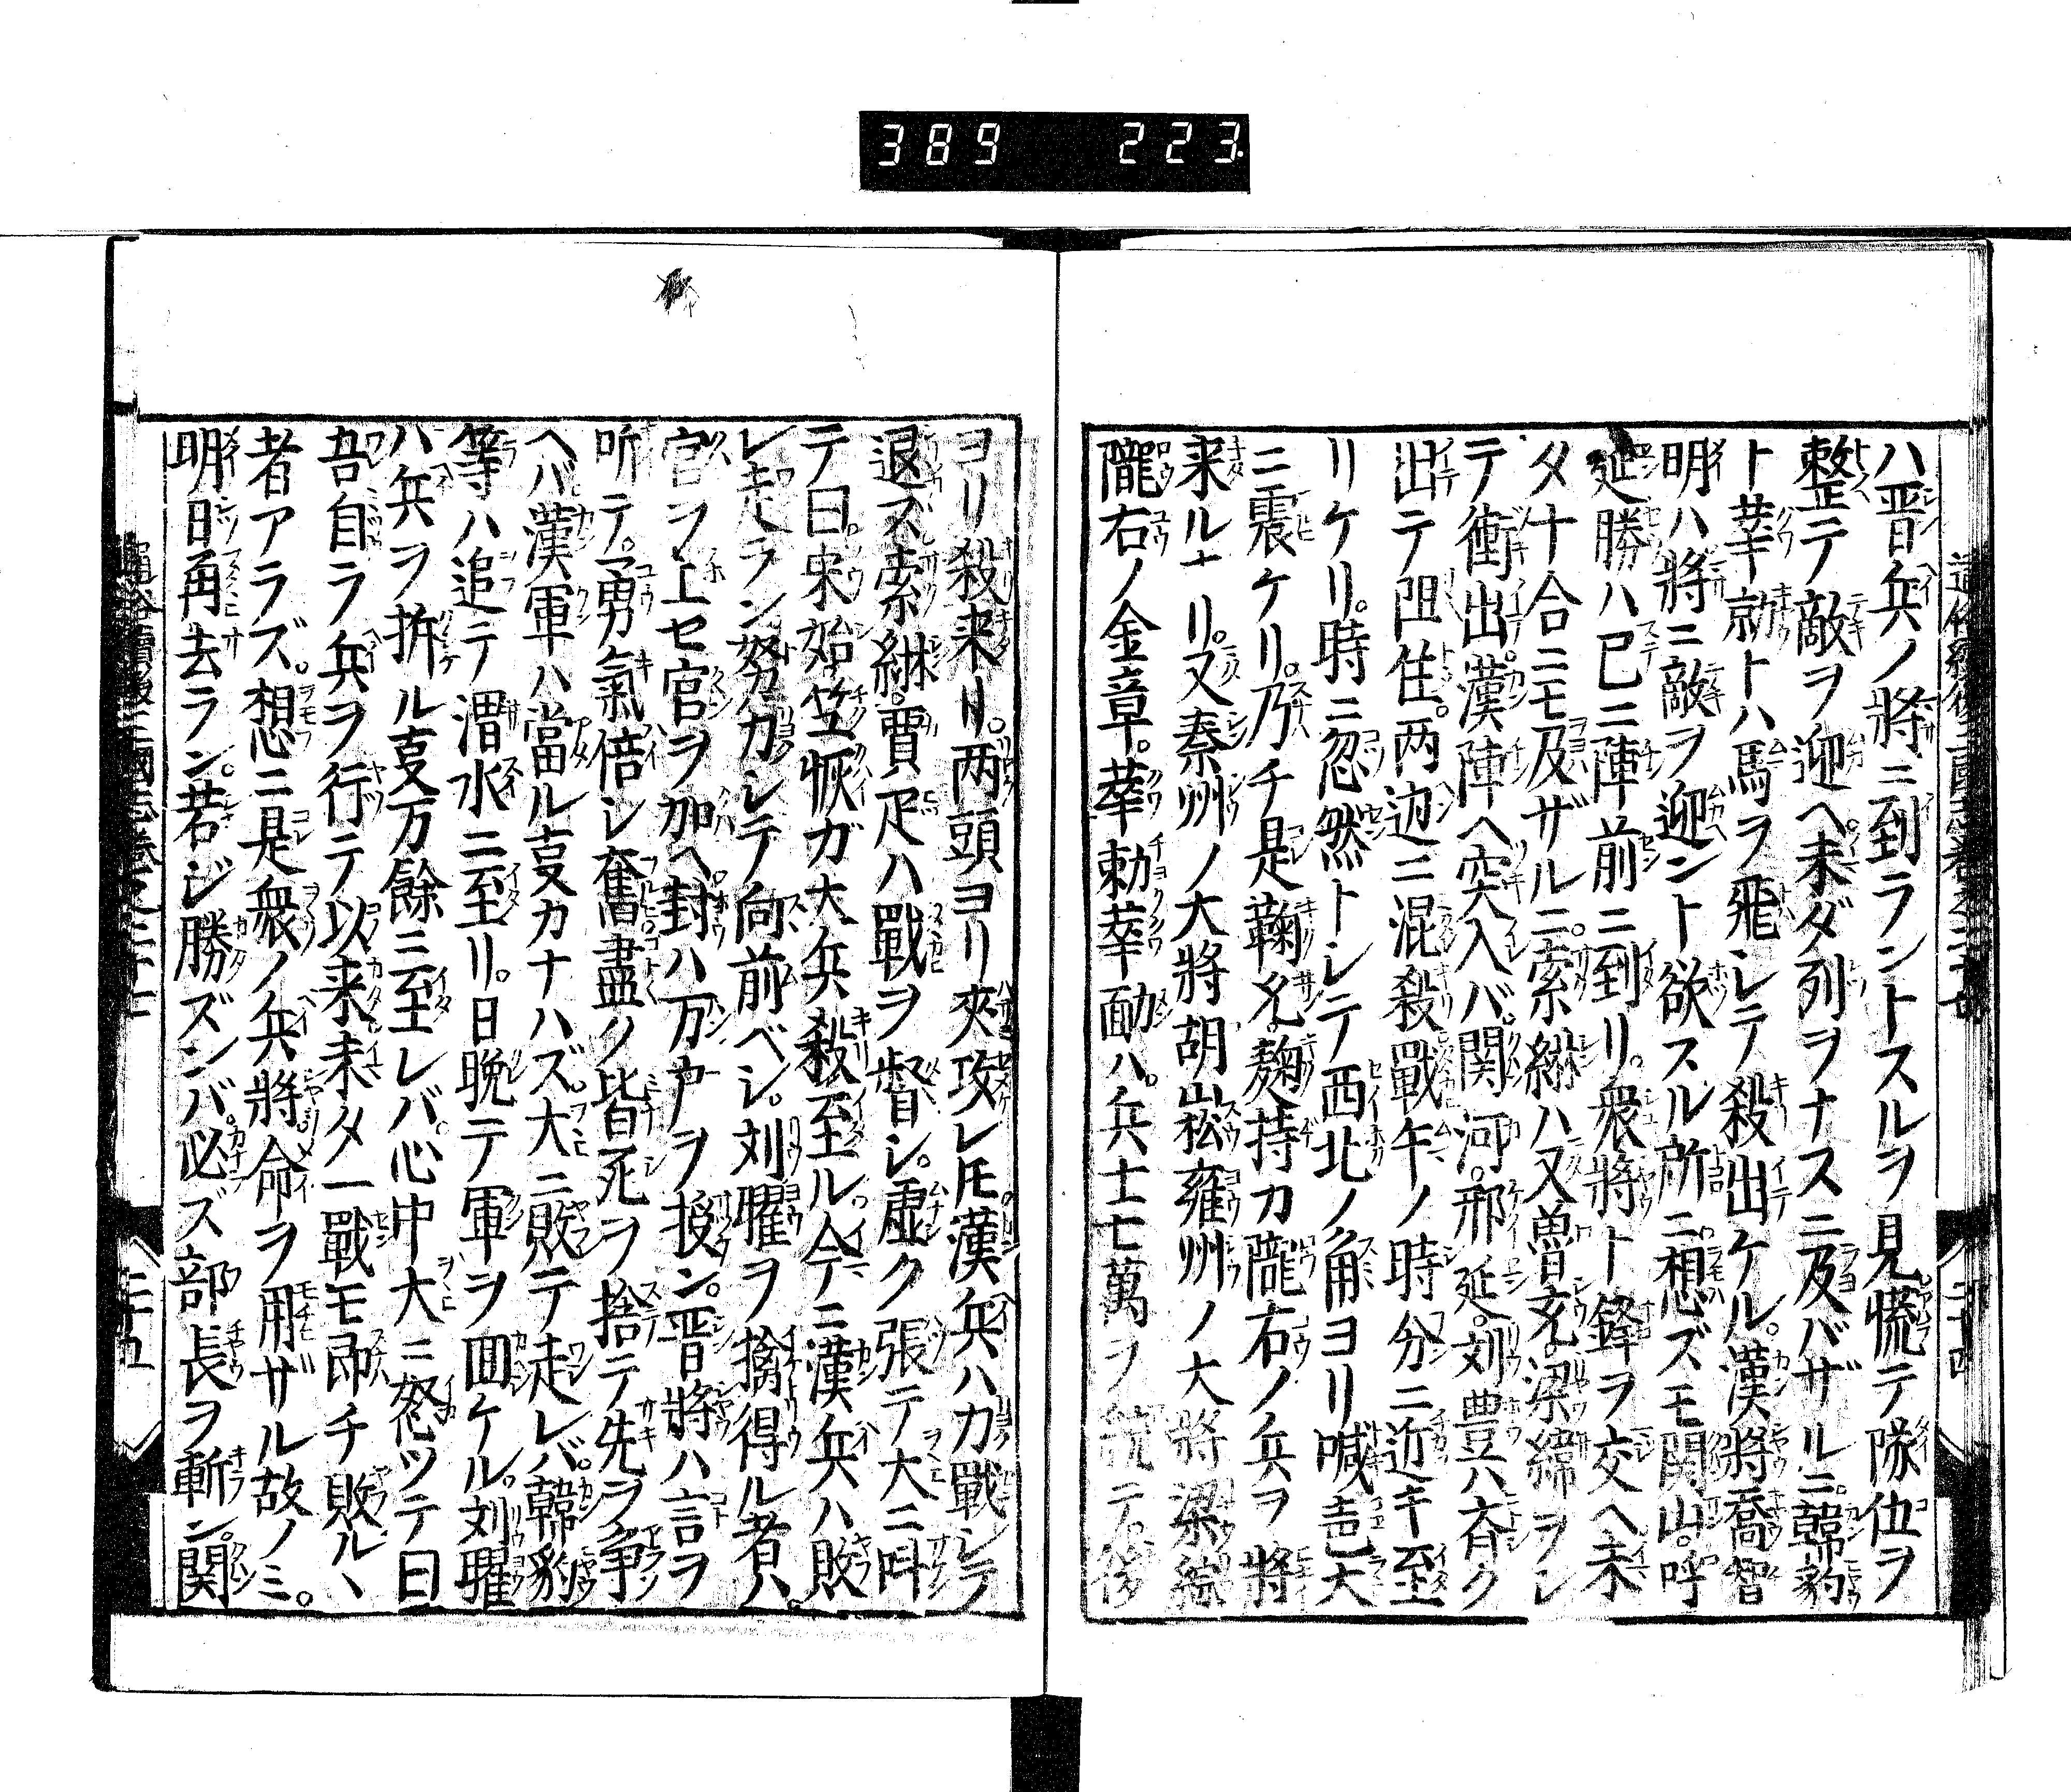 389 223
ハ晋兵ノ將ニ到ラントスルヲ見慌テ隊伍ヲ
整テ敵ヲ迎ヘ未ダ列ヲナスニ及バザルニ韓豹
ト莘勍トハ馬ヲ飛シテ殺出ケル漢將喬智
明ハ將ニ敵ヲ迎ント欲スル所ニ想ズモ関山呼
延勝ハ已ニ陣前ニ到リ衆將ト鋒ヲ交ヘ未
タ十合ニモ及ザルニ索綝ハ又魯充梁緯ヲシ
テ衝出漢陣ヘ突入バ関河邢延刘豊ハ斉ク
出テ阻住両边ニ混殺戰午ノ時分ニ近キ至
リケリ時ニ忽然トシテ西北ノ角ヨリ喊声大
ニ震ケリ乃チ是鞠允麹持カ隴右ノ兵ヲ將
来ルナリ又秦州ノ大將胡崧雍州ノ大將梁綜
隴右ノ金章莘勅莘勔ハ兵士七萬ヲ統テ後
ヨリ殺来リ両頭ヨリ夾攻レ𪜈漢兵ハ力戰シテ
退ズ索綝賈疋ハ戰ヲ督シ虚ク張テ大ニ呌
テ曰宋始竺恢ガ大兵殺至ル今ニ漢兵ハ敗
レ走ラン努力シテ向前ベシ刘曜ヲ擒得ル者ハ
官ヲ上セ官ヲ加ヘ封ハ万户ヲ授ン晋將ハ言ヲ
听テ勇氣倍シ奮盡ノ皆死ヲ捨テ先ヲ争
ヘバ漢軍ハ當ル亨カナハズ大ニ敗テ走レバ韓豹
等ハ追テ渭水ニ至リ日晩テ軍ヲ回ケル刘曜
ハ兵ヲ折ル亨万餘ニ至レバ心中大ニ怒ツテ曰
吾自ラ兵ヲ行テ以来未タ一戰モ即チ敗ルヽ
者アラズ想ニ是衆ノ兵將命ヲ用ザル故ノミ
明日再去ラン若シ勝ズンバ必ズ部長ヲ斬ン関